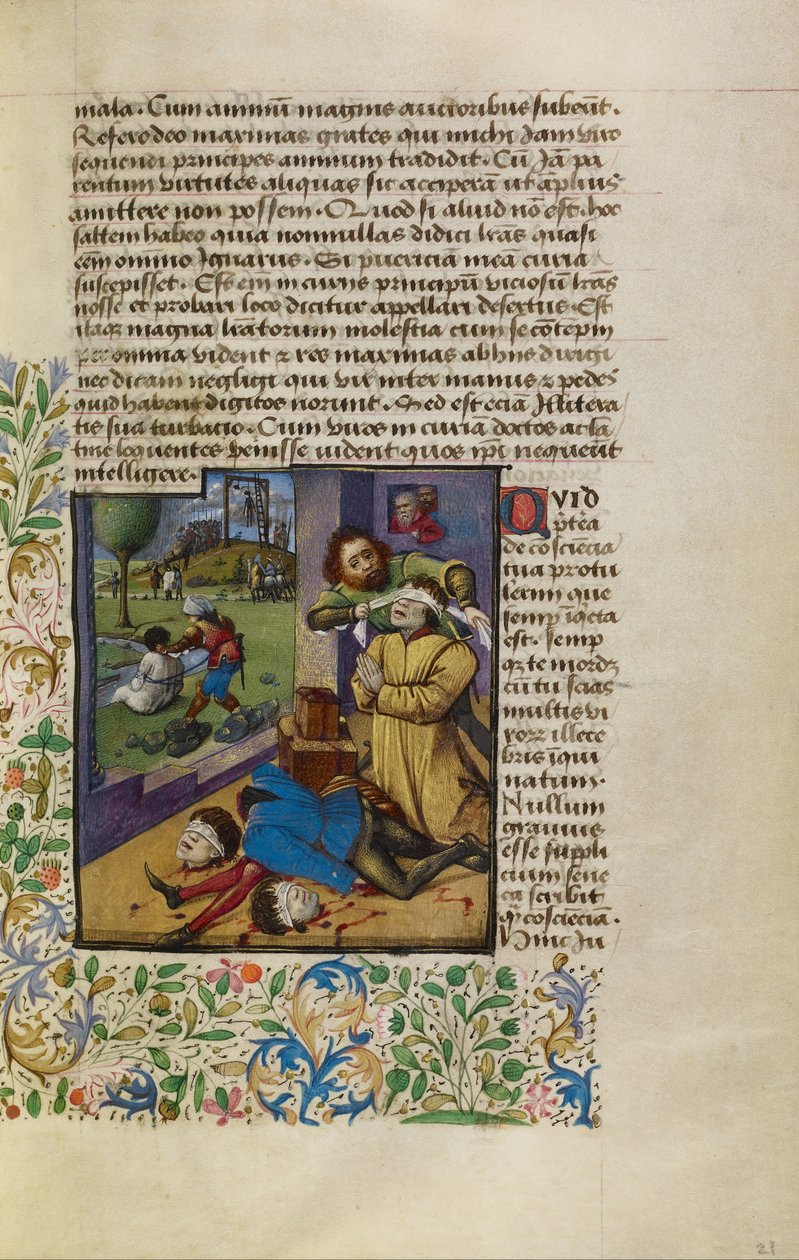 mala. Cum animū magnis auctoribus subeūt.
Refero deo maximas grates qui michi Jam viro
sequendi principes animum tradidit. Cū Jā pa
rentum virtutes aliquas sic acceperā ut āplius
amittere non possem. Quod si aliud nō est. hoc
saltem habeo quia nonnullas didici lr̄as quasi
eēm omnino Ignarus. Si puericiā meā curia
suscepisset. Est em̄ in curiis principū viciosū lr̄as
nosse et probari loco dicitur appellari desertus. Est
itaqꝫ magna lr̄atorum molestia cum se cōtēpni
per omnia vident ⁊ res maximas ab hiis dirigi
nec dicam negligi qui vix inter manus ⁊ pedes
quid habent digitos norunt. Sed est eciā Illitera
tis sua turbacio. Cum viros in curia doctos ac la
tine loquentes venisse vident quos ip̄i nequeūt
intelligere.
QVID
p̄tēa
de cōsciēcia
tua protu
lerim que
semp īq̄eta
est. semp
qꝫ te mordꝫ
cū tu scias
multis vi
roꝝ illece
bris īqui
natum.
Nullum
gravius
esse suppli
cium sene
ca scribit
q̄ cōsciēciā.
Hinc Iu
21